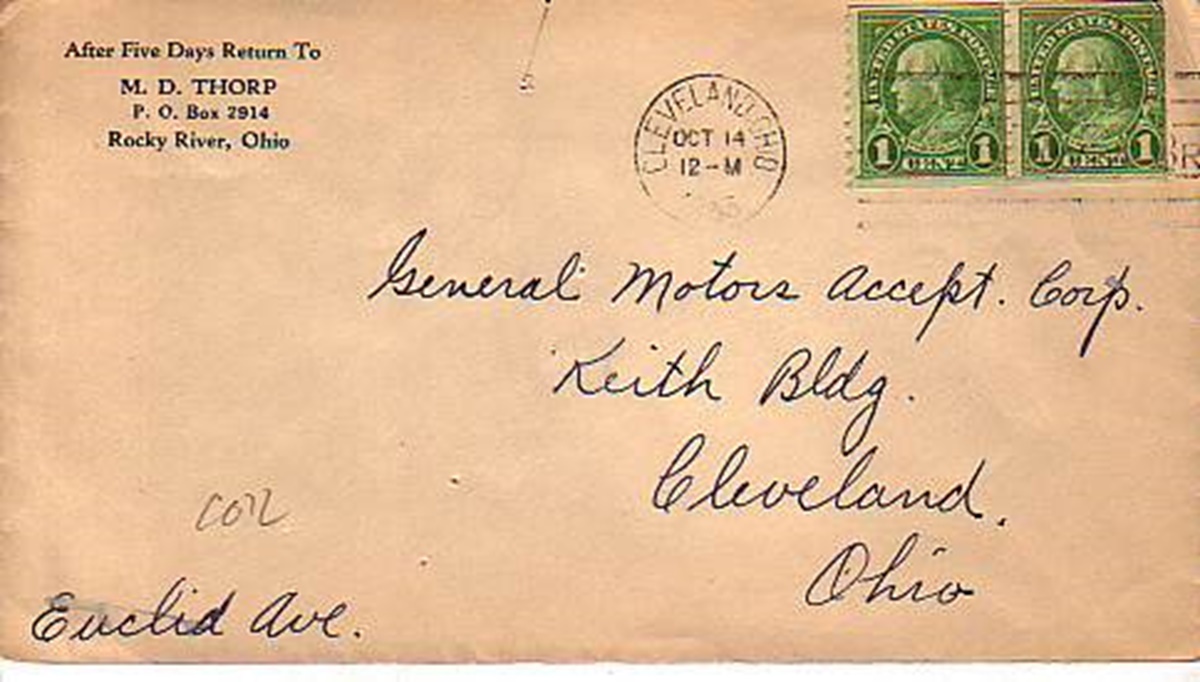 After Five Days Return To
M. D. THORP
P. O. Box 2914
Rocky River, Ohio
CLEVELAND, OHIO
OCT 14
12-M
UNITED STATES POSTAGE
1 CENT 1
UNITED STATES POSTAGE
1 CENT 1
BR
General Motors Accept. Corp.
Keith Bldg.
Cleveland,
Ohio
COIL
Euclid Ave.